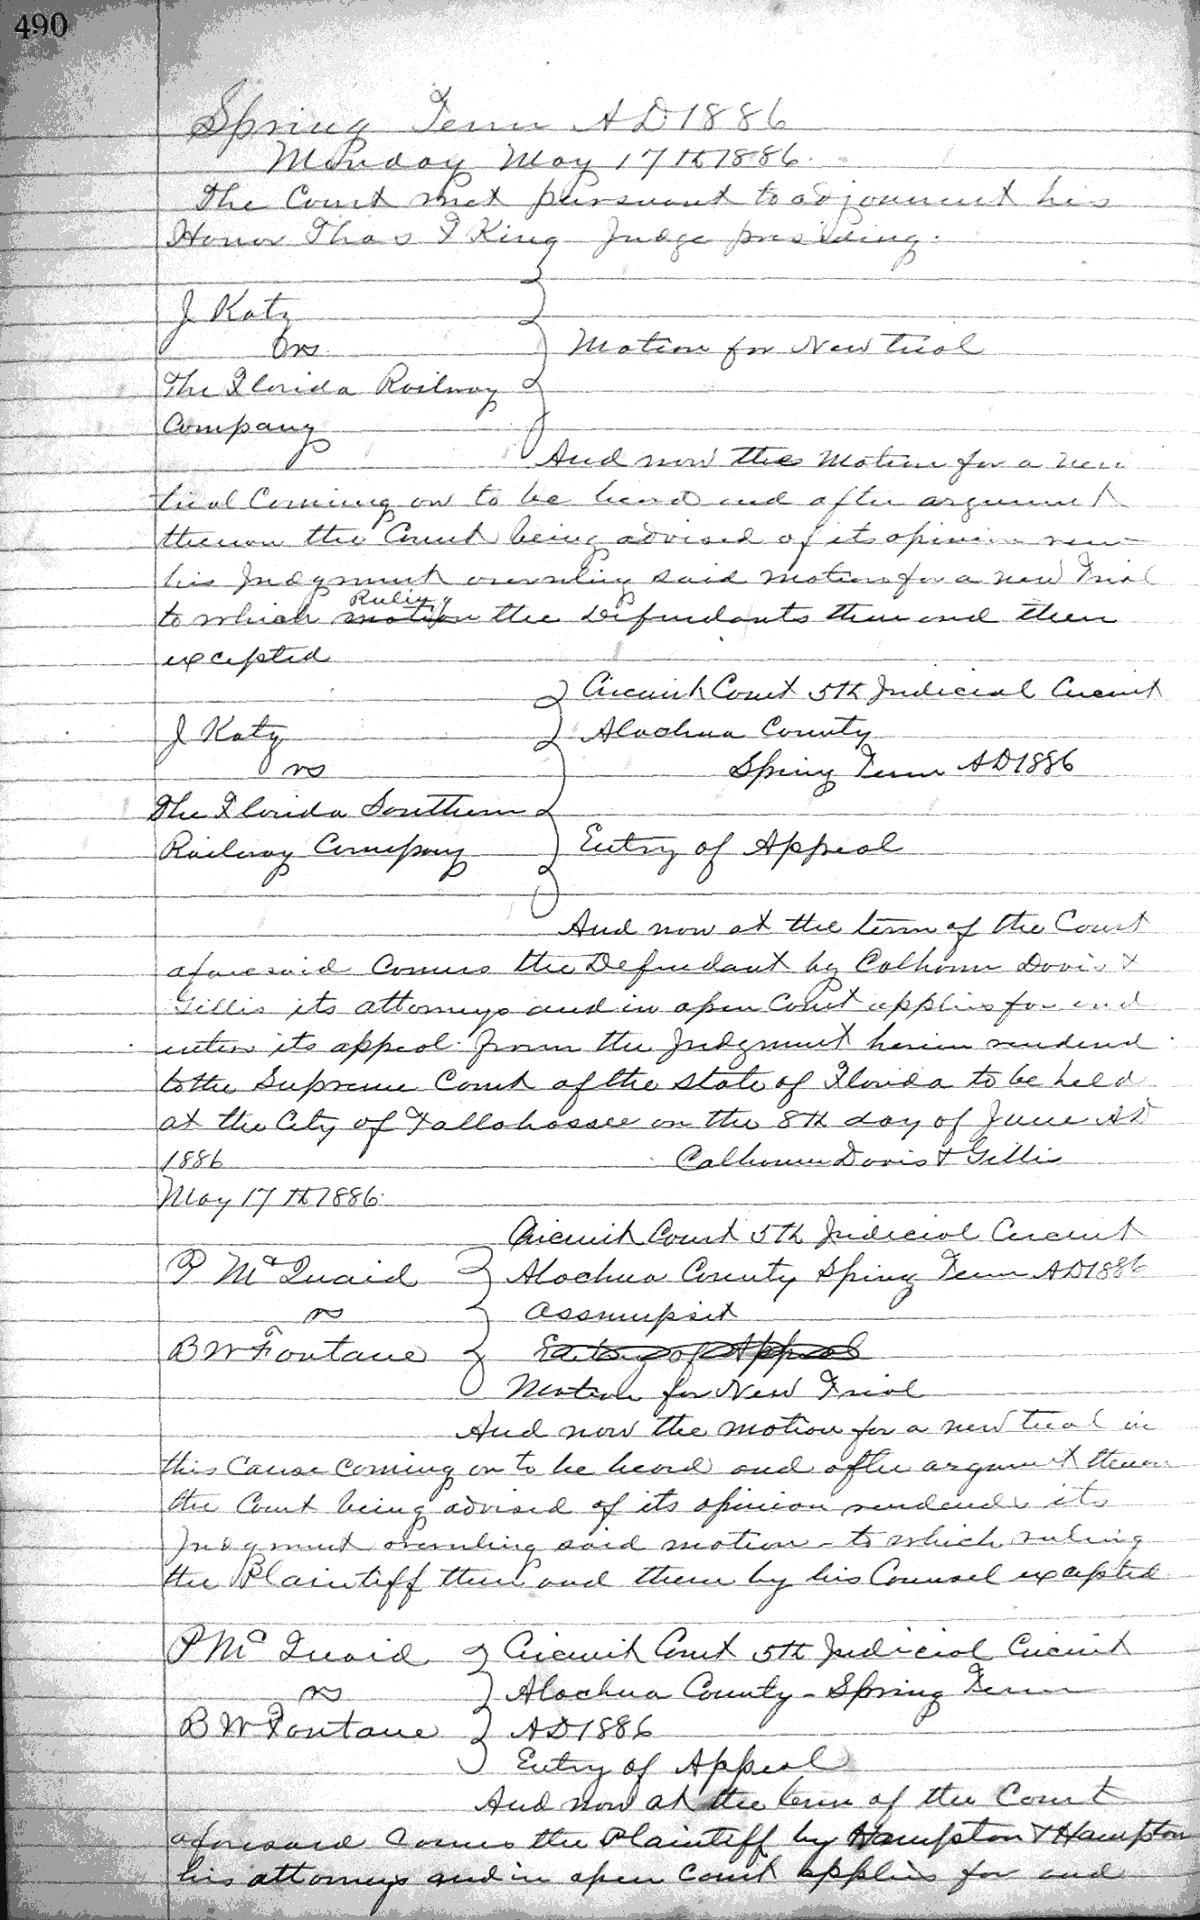 490
Spring Term AD 1886
Monday May 17th 1886.
The Court met pursuant to adjournment his
Honor Thos F King Judge presiding.
J Katz
vs
Motion for New trial
The Florida Railway
Company
And now the Motion for a new
trial Coming on to be heard and after argument
thereon the Court being advised of its opinion
his Judgment overruling said motion for a new Trial
to which motion Ruling the Defendants then and there
excepted
Circuit Court 5th Judicial Circuit
J Katz
Alachua County
vs
Spring Term AD 1886
The Florida Southern
Railway Company
Entry of Appeal
And now at the term of the Court
aforesaid Comes the Defendant by Calhoun Davis &
Gillis its attorneys and in open Court applies for and
enters its appeal from the Judgment herein rendered
to the Supreme Court of the State of Florida to be held
at the City of Tallahassee on the 8th day of June AD
1886
Calhoun Davis & Gillis
May 17th 1886.
Circuit Court 5th Judicial Circuit
P McQuaid
Alachua County Spring Term AD 1886
vs
Assumpsit
B W Fontane
Entry of Appeal
Motion for New Trial
And now the motion for a new trial in
this Cause coming on to be heard and after argument thereon
the Court being advised of its opinion rendered its
Judgment overruling said motion - to which ruling
the Plaintiff then and there by his Counsel excepted
P McQuaid
Circuit Court 5th Judicial Circuit
vs
Alachua County - Spring Term
B W Fontane
AD 1886
Entry of Appeal
And now at the term of the Court
aforesaid comes the Plaintiff by Hampton & Hampton
his attorneys and in open court applies for and